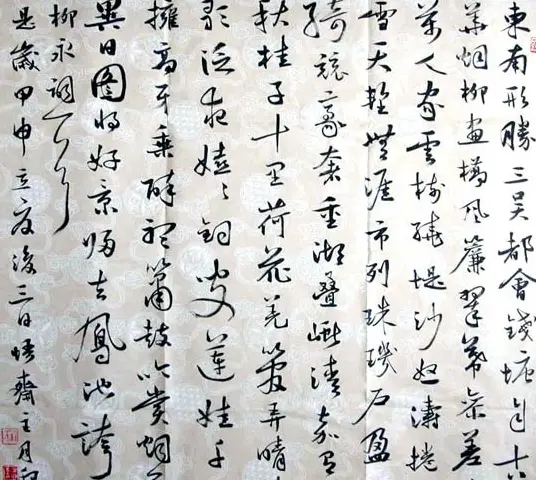 東南形勝三吳都會錢塘自古
華烟柳畫橋風簾翠幕參差
萬人家雲樹繞堤沙怒濤捲
雪天塹無涯市列珠璣戶盈
綺競豪奢重湖疊巘清嘉有
秋桂子十里荷花羌管弄晴
歌泛夜嬉〻釣叟蓮娃千
擁高牙乘醉聽簫鼓吟賞烟
異日圖將好景歸去鳳池誇
柳永詞一首
是歲甲申立夏後三日悟齋主月